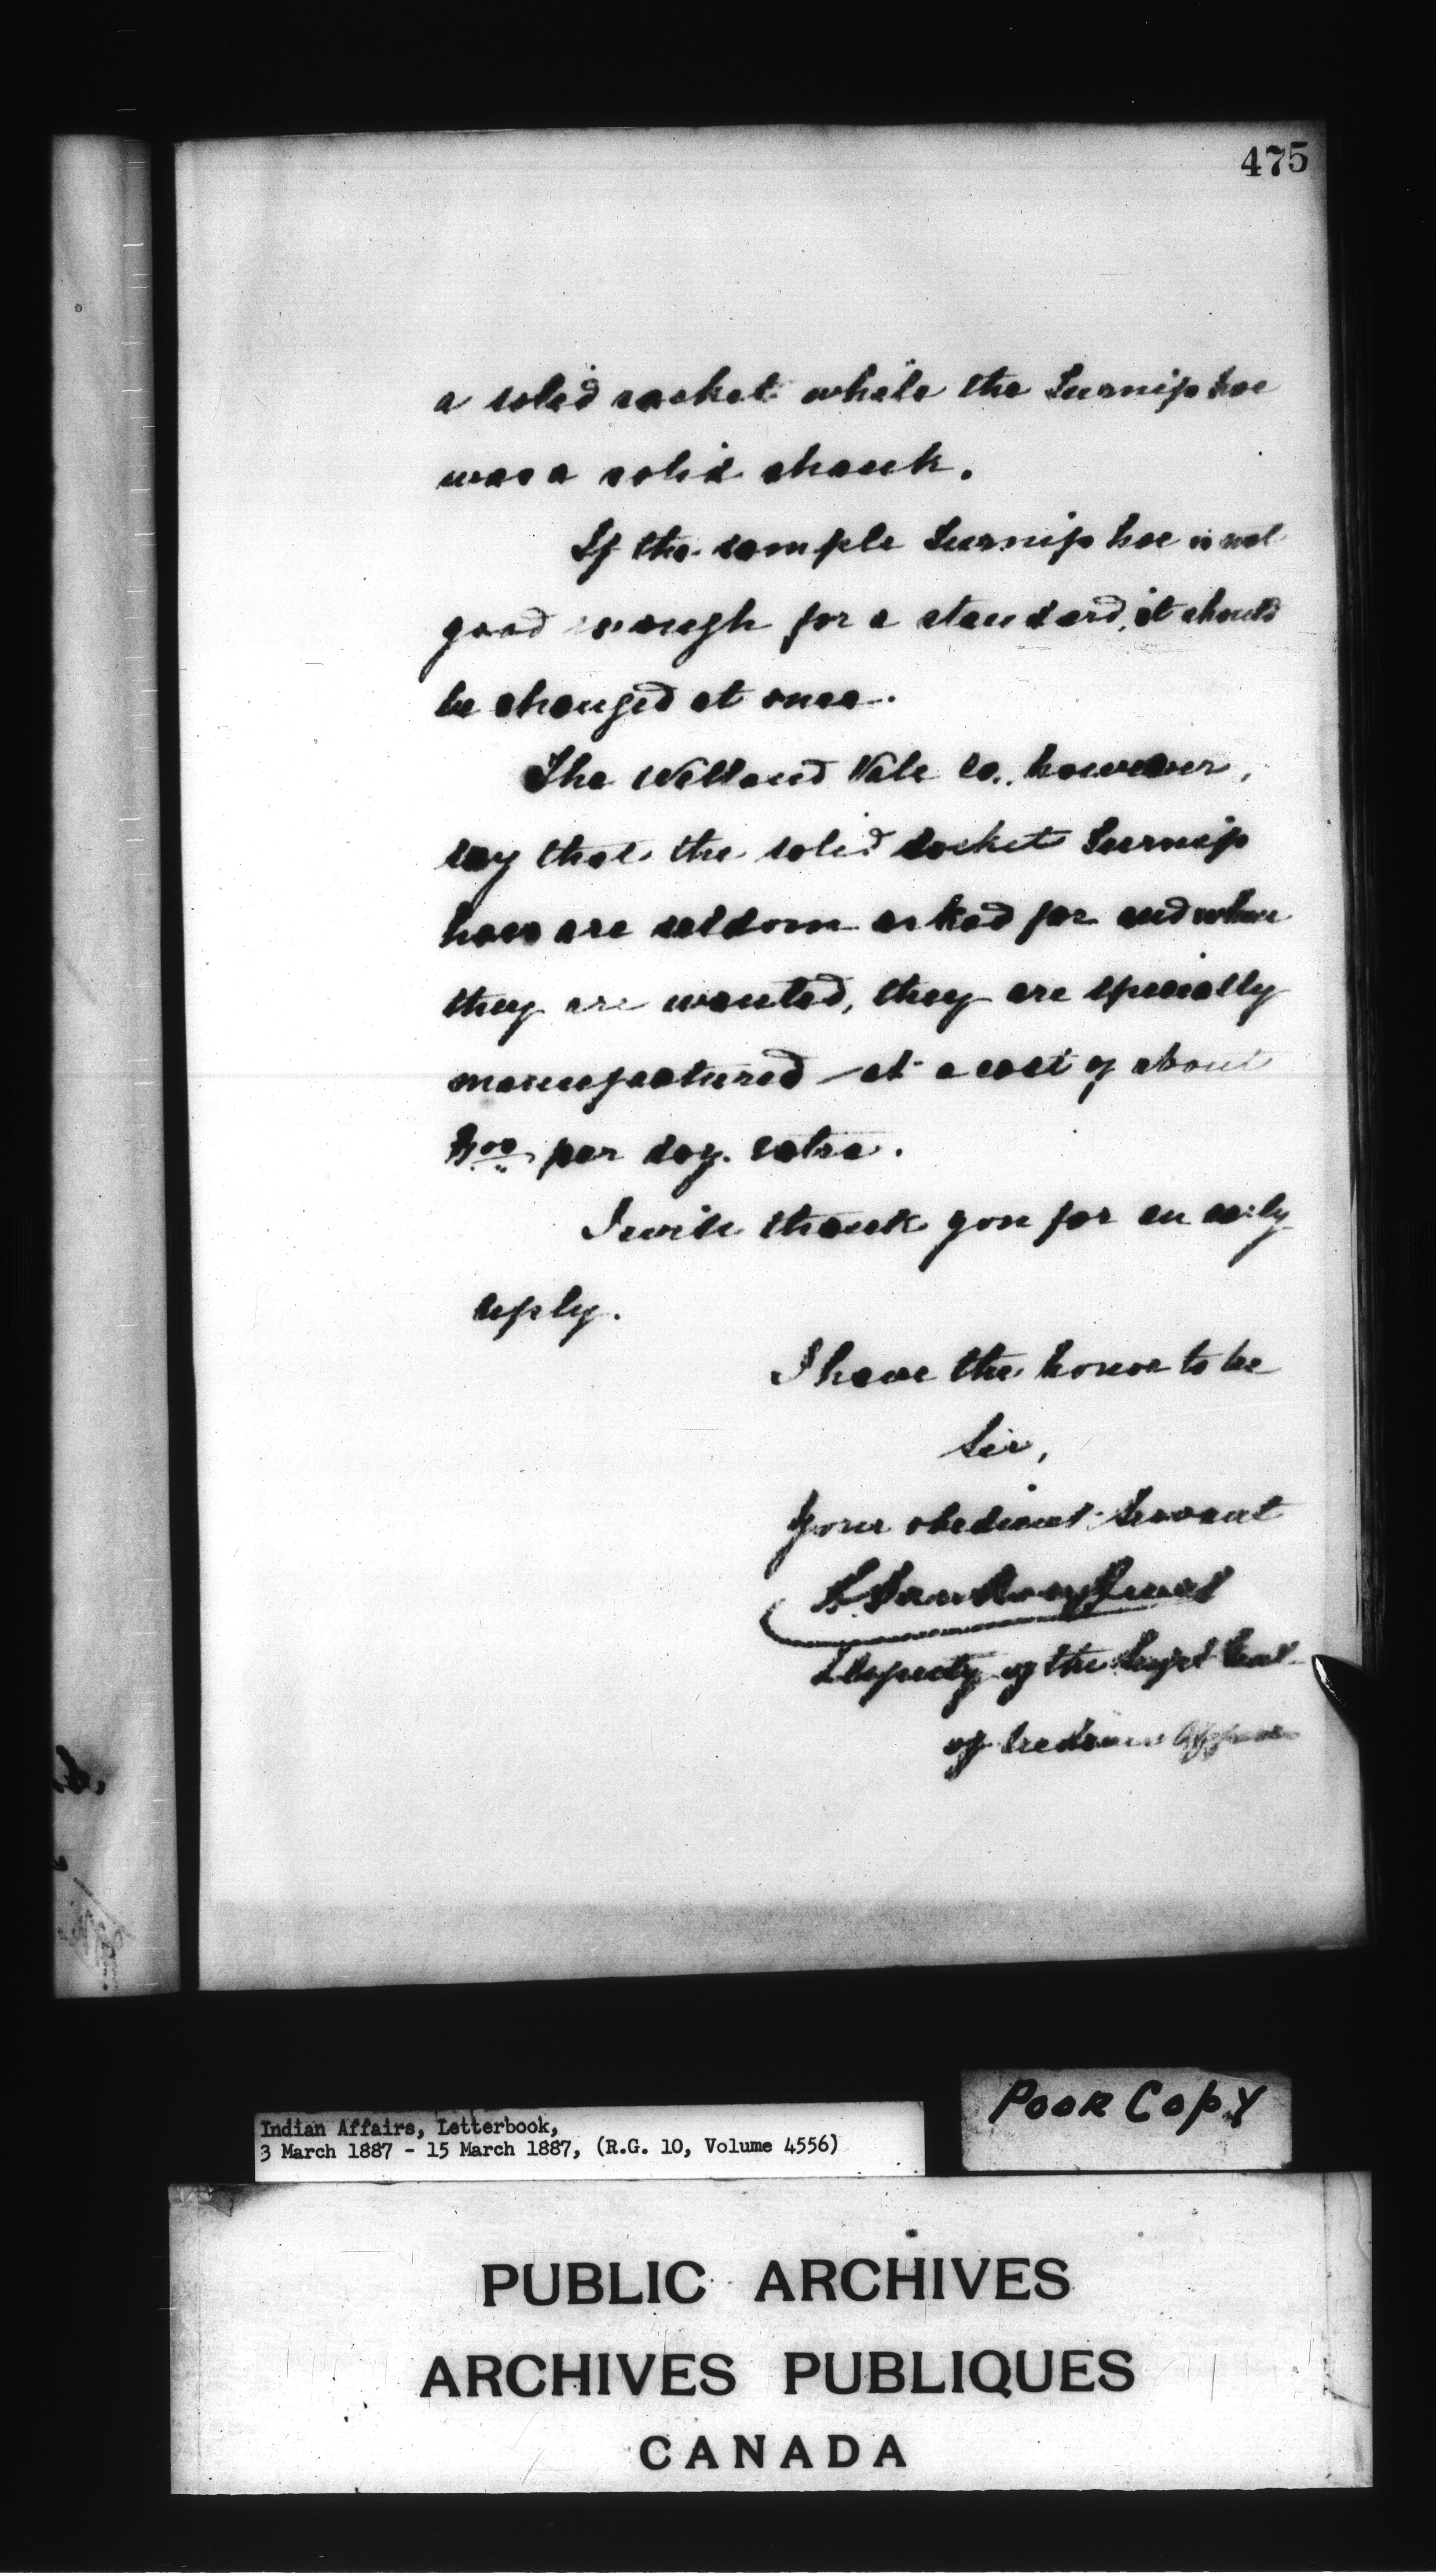 475
a solid socket while the Turnip hoe
was a solid shank.
If the sample Turnip hoe is not
good enough for a standard, it should
be changed at once.
The Welland Vale Co. however,
say that the solid socket Turnip
hoes are seldom asked for and when
they are wanted, they are specially
manufactured at a cost of about
per doz. extra.
I will thank you for an early
reply.
I have the honor to be
Sir,
Your obedient Servant
L. Vankoughnet
Deputy of the Supt Genl
of Indian Affairs
POOR COPY
Indian Affairs, Letterbook,
3 March 1887 - 15 March 1887, (R.G. 10, Volume 4556)
PUBLIC ARCHIVES
ARCHIVES PUBLIQUES
CANADA